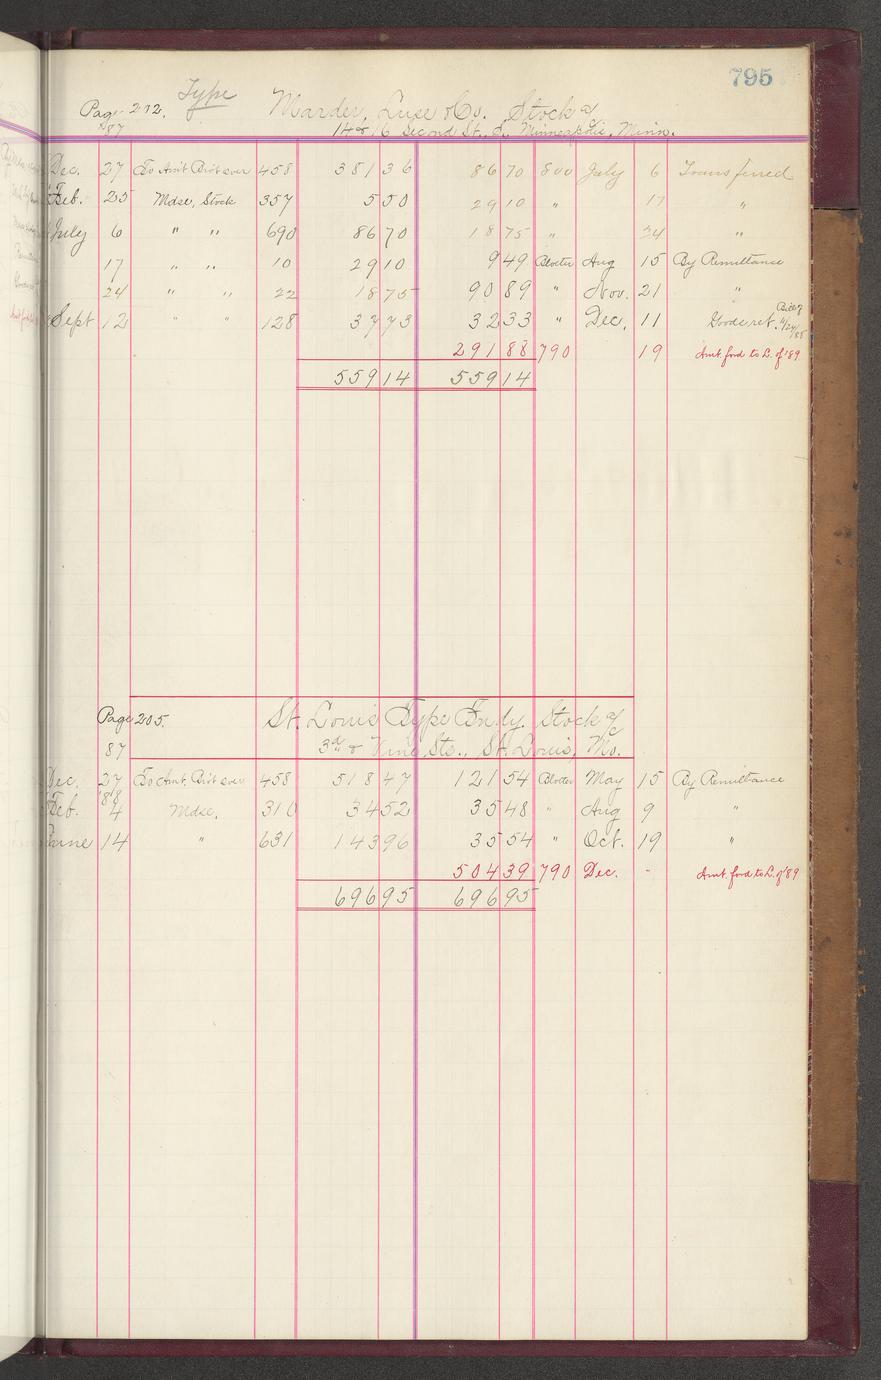 795
Page 272. Type Marder, Luse & Co. Stock a/c
'87 14 & 16 Second St., S., Minneapolis, Minn.
Dec. 27 To Am't Bro't over 458 381 36 86 70 800 July 6 Transferred
Feb. 25 Mdse, Stock 357 5 50 29 10 " 17 "
July 6 " " 690 86 70 18 75 " 24 "
17 " " 10 29 10 9 49 Blotter Aug 15 By Remittance
24 " " 22 18 75 90 89 " Nov. 21 "
Sept 12 " " 128 37 73 32 33 " Dec. 11 Goods ret.
291 88 790 19 Amt. ford to L. of '89
559 14 559 14
Page 205. St. Louis Type Fndy. Stock a/c
87 3d & Vine Sts., St. Louis, Mo.
Dec. 27 To Amt. Bro't over 458 518 47 121 54 Blotter May 15 By Remittance
'88
Feb. 4 Mdse. 310 34 52 35 48 " Aug 9 "
June 14 " 631 143 96 35 54 " Oct. 19 "
504 39 790 Dec. - Amt. ford to L. of '89
696 95 696 95